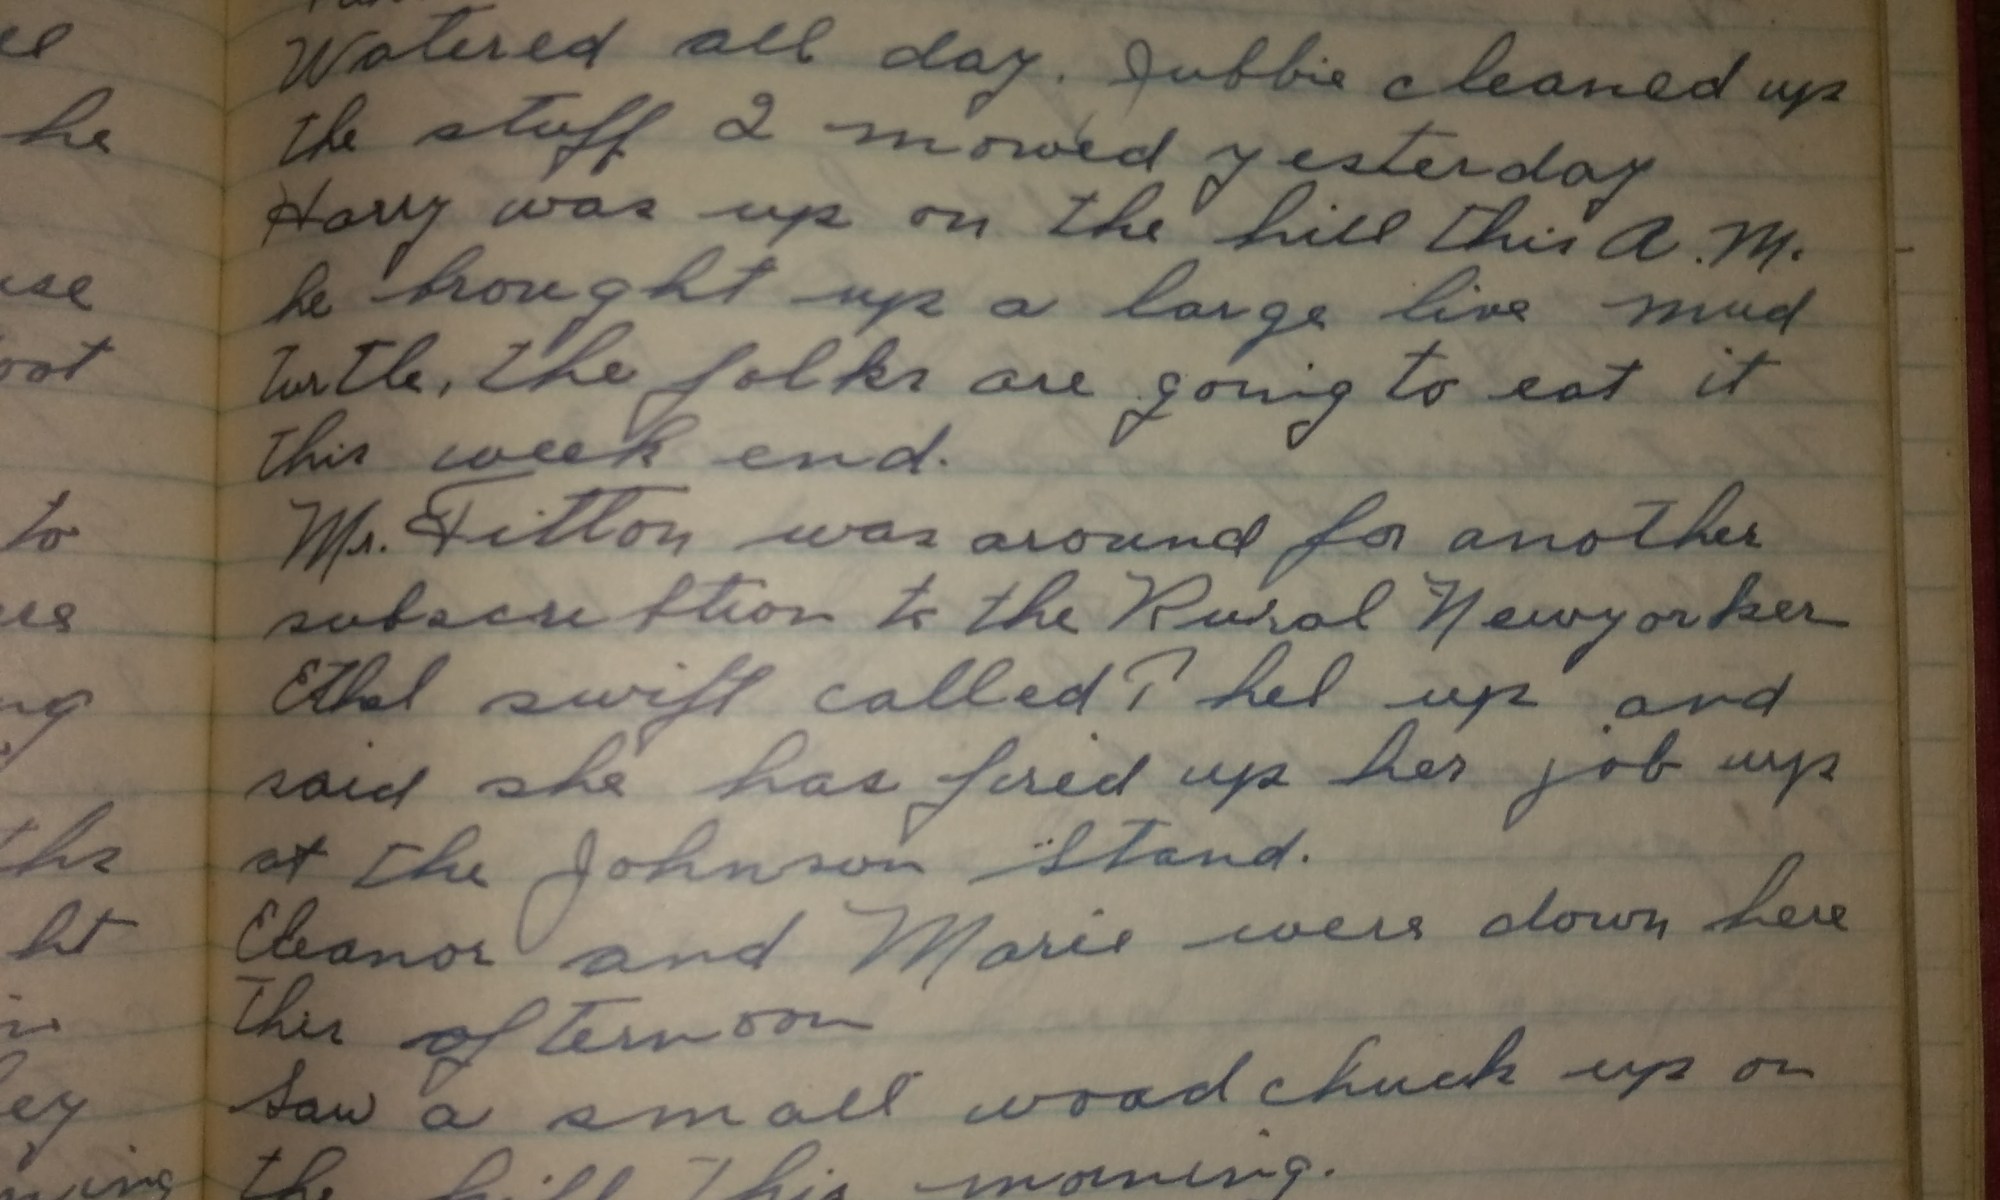 Watered all day. Jubbie cleaned up
the stuff I mowed yesterday
Harry was up on the hill this A.M.
he brought up a large live mud
turtle, the folks are going to eat it
this week end.
Mr. Fitton was around for another
subscribtion to the Rural Newyorker
Ethel swift called up and
said she has fired up her job up
at the Johnson Stand.
Eleanor and Marie were down here
this afternoon
Saw a small woodchuck up on
the hill this morning.